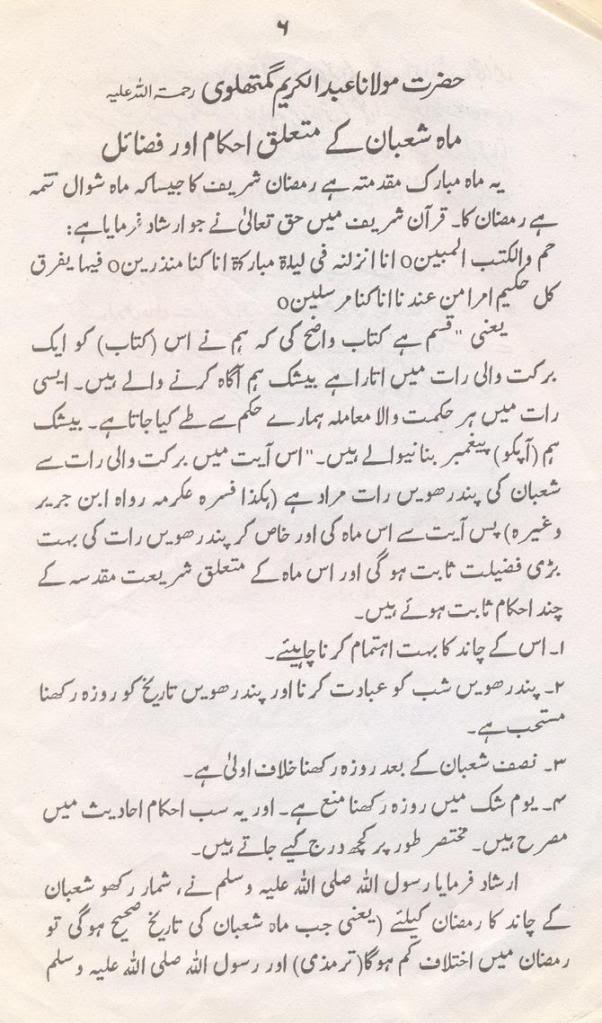 ۶
حضرت مولانا عبدالکریم گمتھلوی رحمۃ اللہ علیہ
ماہ شعبان کے متعلق احکام اور فضائل
یہ ماہ مبارک مقدمتہ ہے رمضان شریف کا جیساکہ ماہ شوال تتمہ
ہے رمضان کا۔ قرآن شریف میں حق تعالیٰ نے جو ارشاد فرمایا ہے:
حم والکتب المبین٥ انا انزلنہ فی لیلۃ مبارکۃ انا کنا منذرین٥ فیہا یفرق
کل حکیم امرا من عندنا انا کنا مرسلین٥
یعنی "قسم ہے کتاب واضح کی کہ ہم نے اس (کتاب) کو ایک
برکت والی رات میں اتارا ہے بیشک ہم آگاہ کرنے والے ہیں۔ ایسی
رات میں ہر حکمت والا معاملہ ہمارے حکم سے طے کیا جاتا ہے۔ بیشک
ہم (آپکو) پیغمبر بنانیوالے ہیں۔" اس آیت میں برکت والی رات سے
شعبان کی پندرھویں رات مراد ہے (ہکذا فسرہ عکرمہ رواہ ابن جریر
وغیرہ) پس آیت سے اس ماہ کی اور خاص کر پندرھویں رات کی بہت
بڑی فضیلت ثابت ہوگی اور اس ماہ کے متعلق شریعت مقدسہ کے
چند احکام ثابت ہوئے ہیں۔
۱۔ اس کے چاند کا بہت اہتمام کرنا چاہیئے۔
۲۔ پندرھویں شب کو عبادت کرنا اور پندرھویں تاریخ کو روزہ رکھنا
مستحب ہے۔
۳۔ نصف شعبان کے بعد روزہ رکھنا خلاف اولیٰ ہے۔
۴۔ یوم شک میں روزہ رکھنا منع ہے۔ اور یہ سب احکام احادیث میں
مصرح ہیں۔ مختصر طور پر کچھ درج کیے جاتے ہیں۔
ارشاد فرمایا رسول اللہ صلی اللہ علیہ وسلم نے، شمار رکھو شعبان
کے چاند کا رمضان کیلئے (یعنی جب ماہ شعبان کی تاریخ صحیح ہوگی تو
رمضان میں اختلاف کم ہوگا (ترمذی) اور رسول اللہ صلی اللہ علیہ وسلم